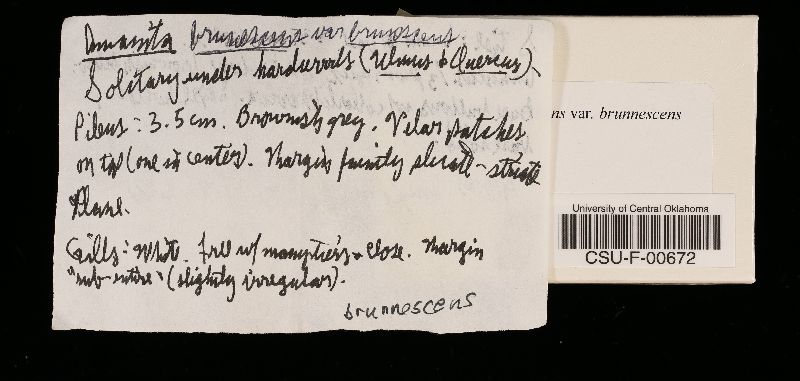 Amanita brunnescens var brunnescens.
Solitary under hardwoods (Ulmus & Quercus).
Pileus: 3.5cm. Brownish grey. Velar patches
on top (one in center). Margin faintly -striate
Plane.
Gills: White. Free w/ many tiers & close. Margin
"sub-entire" (slightly irregular).
brunnescens
ns var. brunnescens
University of Central Oklahoma
CSU-F-00672